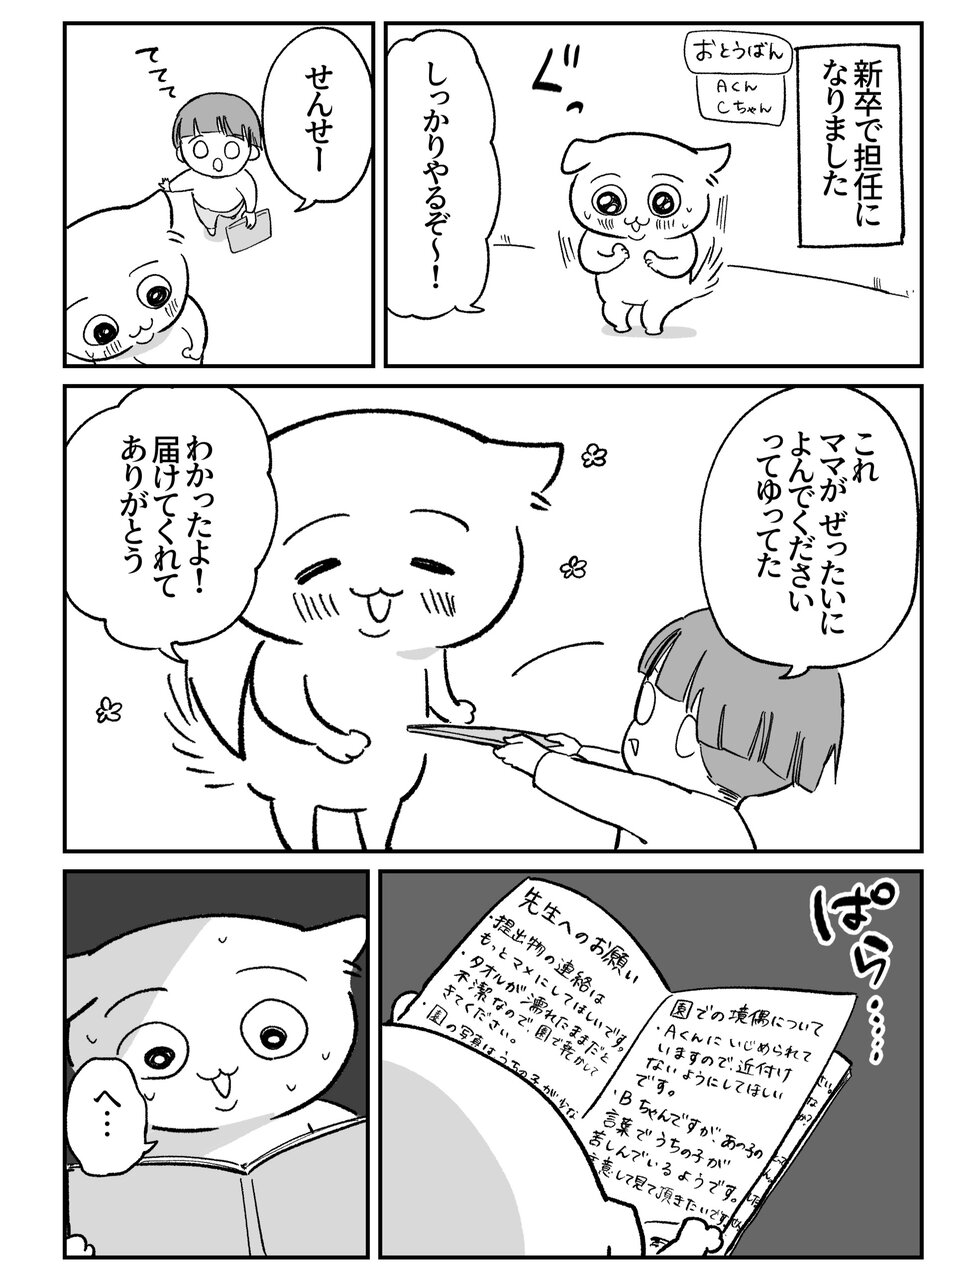 新卒で担任に
なりました
おとうばん
Aくん
Cちゃん
グッ
しっかりやるぞ〜!
せんせー
ててて
これ
ママが ぜったいに
よんでください
ってゆってた
わかったよ!
届けてくれて
ありがとう
ぱら……
先生へのお願い
・提出物の連絡は
もっとマメにしてほしいです。
・タオルが濡れたままだと
不潔なので、園で乾かして
きてください。
・園の写真はうちの子が少な
園での境偶について
・Aくんにいじめられて
いますので、近付け
ないようにしてほしい
です。
・Bちゃんですが、あの子の
言葉でうちの子が
苦しんでいるようです。
意して見て頂きたいです
へ…